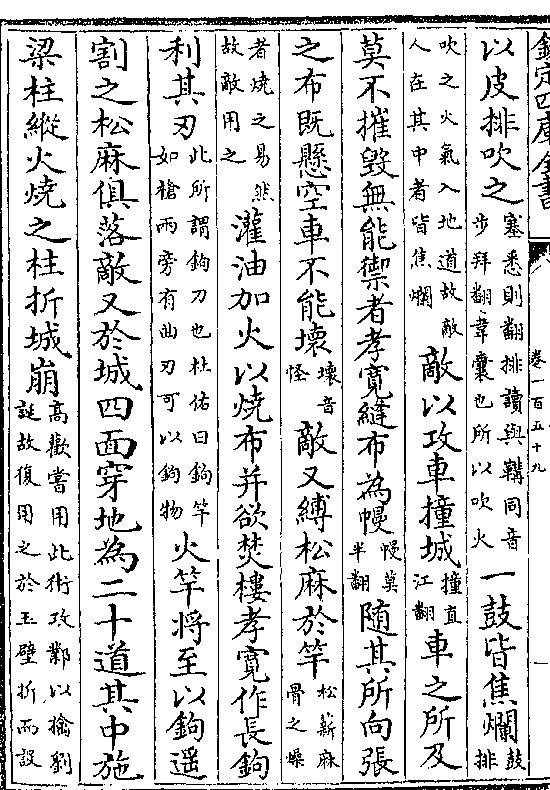 欽定四庫全書
卷一百五十九
以皮排吹之塞悉則翻排讀與鞴同音步拜翻韋囊也所以吹火一鼓皆焦爛鼓排
吹之火氣入地道故敵人在其中者皆焦爛敵以攻車撞城撞直江翻車之所及
莫不摧毀無能禦者孝寬縫布為幔幔莫半翻隨其所向張
之布既懸空車不能壞壞音怪敵又縛松麻於竿松薪麻骨之燥
者燒之易然故敵用之灌油加火以燒布并欲焚樓孝寬作長鉤
利其刃此所謂鉤刀也杜佑曰鉤竿如槍兩旁有曲刃可以鉤物火竿將至以鉤遥
割之松麻俱落敵又於城四面穿地為二十道其中施
梁柱縱火燒之柱折城崩高歡嘗用此術攻鄴以擒劉誕故復用之於玉壁折而設